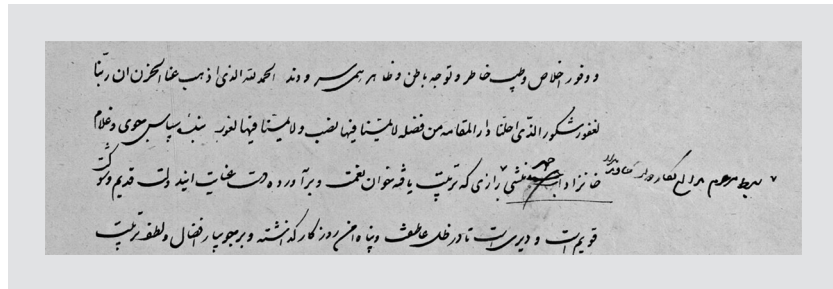 و وفور اخلاص و طیب خاطر و توجه باطن و ظاهر همی سرودند الحمد لله الذی اذهب عنا الحزن ان ربنا
لغفور شکور الذی احلنا دار المقامه من فضله لا یمسنا فیها نصب و لا یمسنا فیها لغوب بنده سپاس جوی و غلام
خانزاد منشی رازی که تربیت یافته خوان نعمت و برآورده دست عنایت این دولت قدیم و شوکت
قویم است و دیری است تا در ظل عاطفت و پناه این روزگار گذاشته و بر جویبار افضال و لطف تربیت